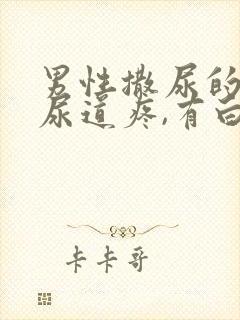 男性撒尿的
尿道疼,有白
卡卡哥